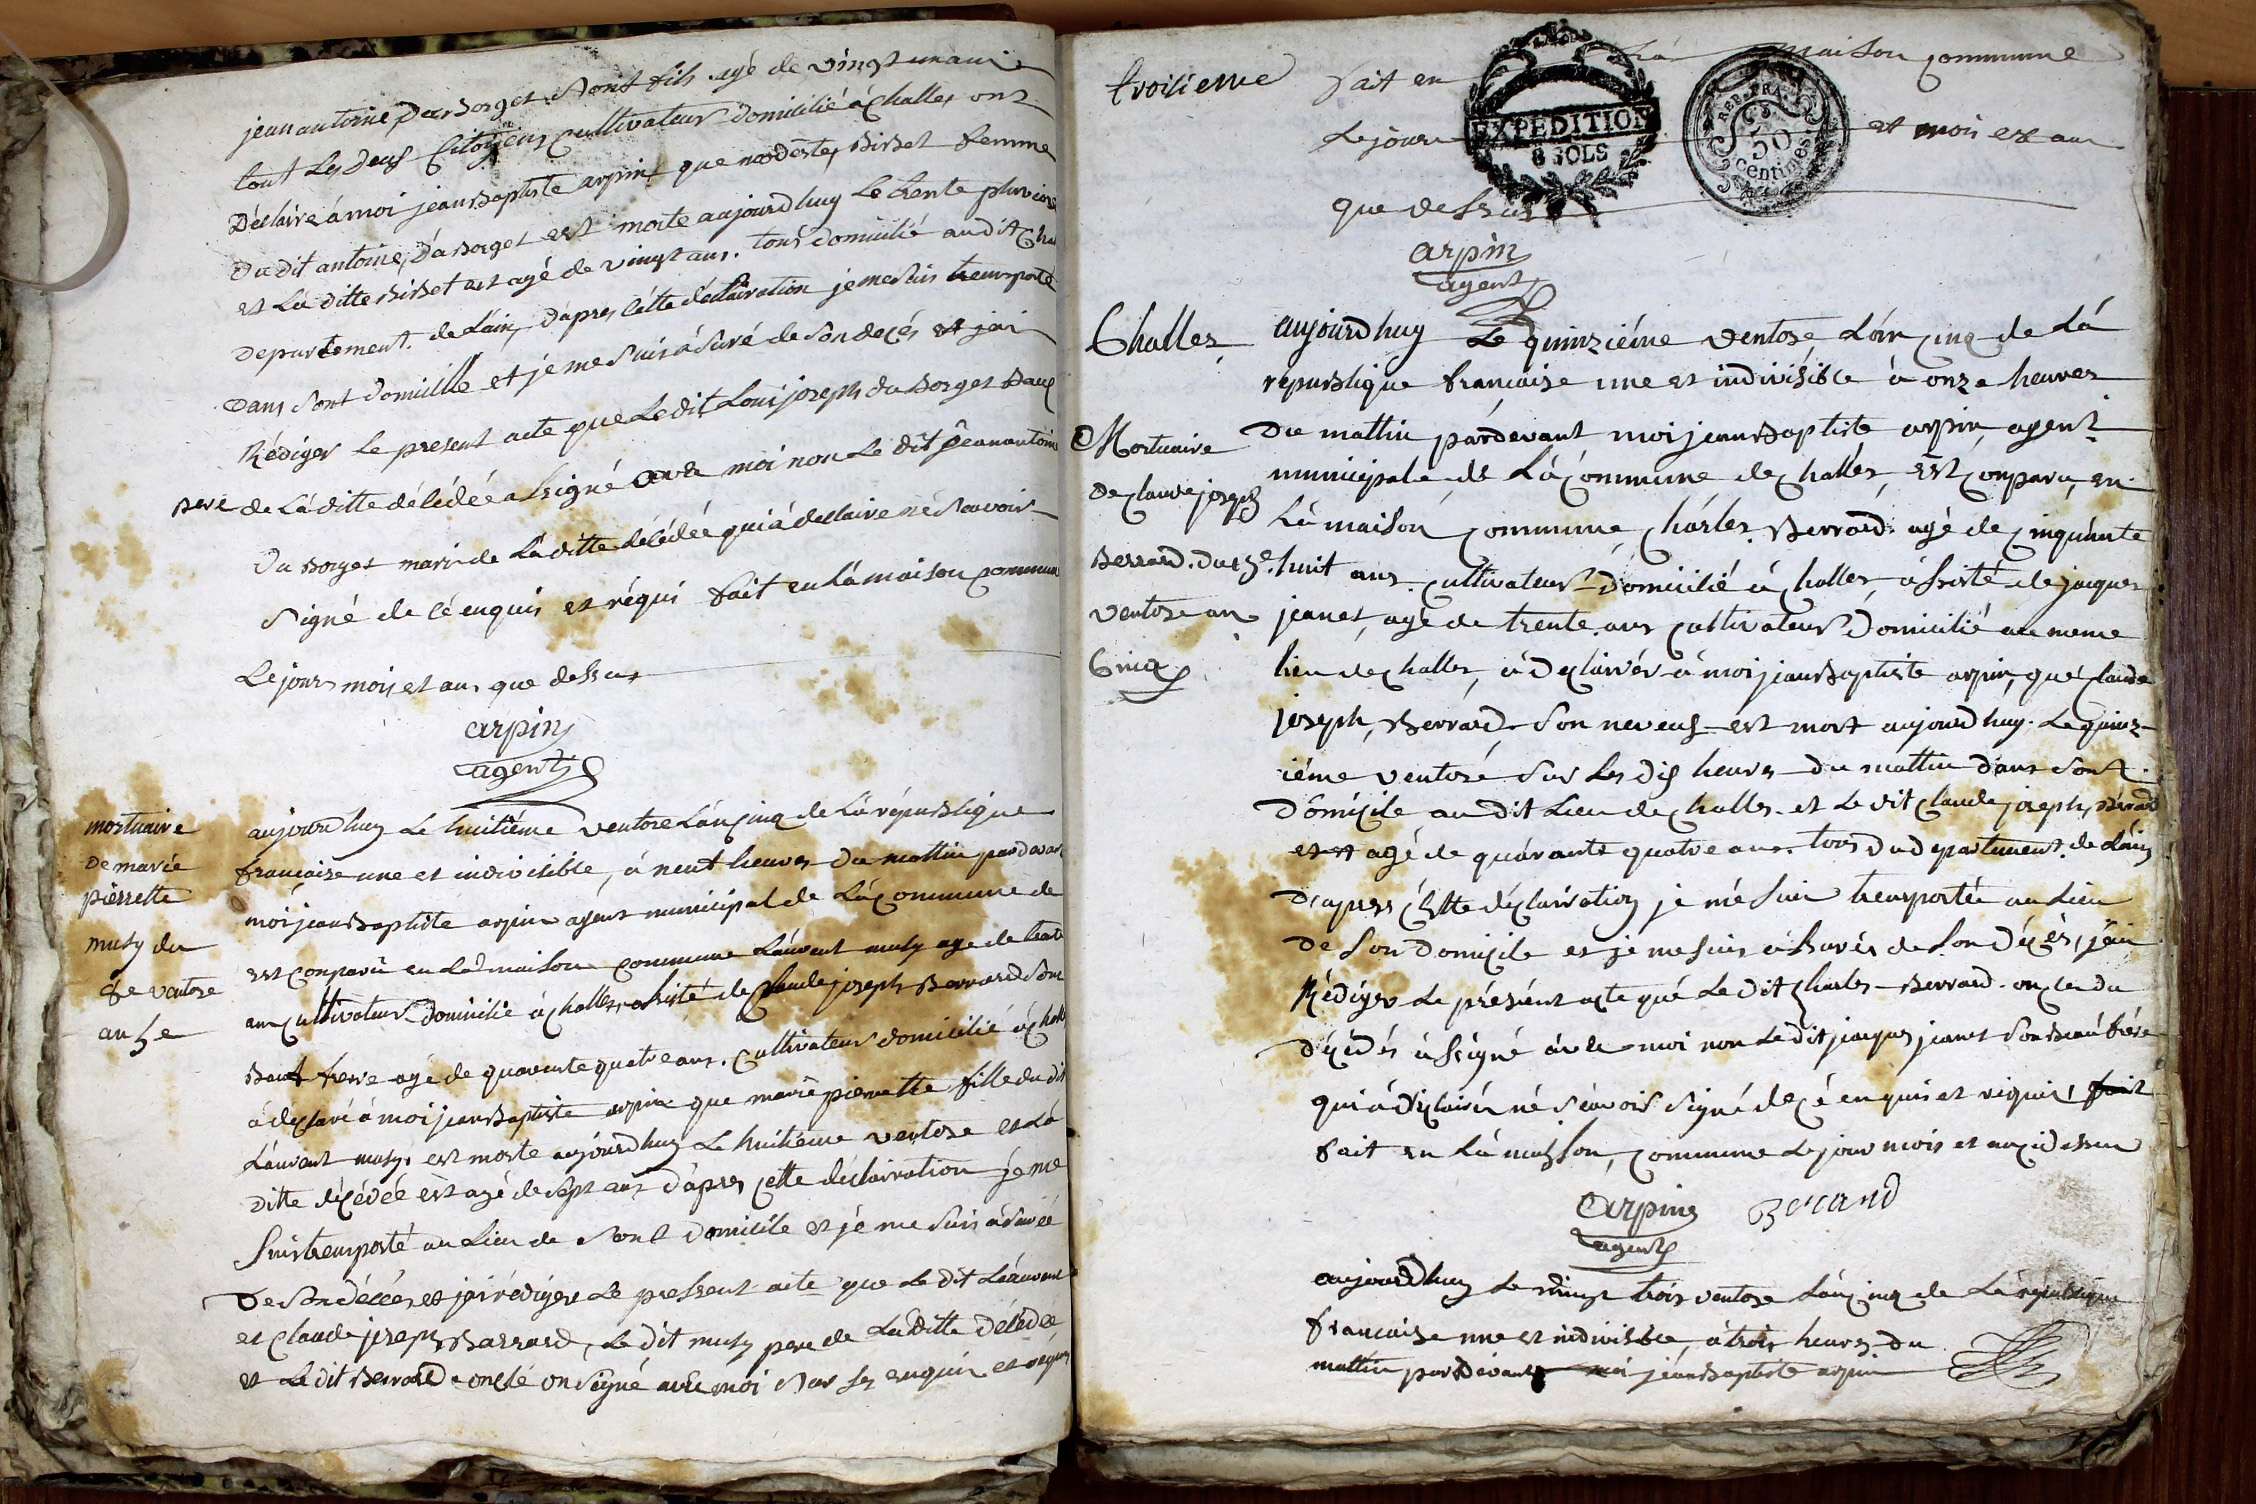 jean antoine Du Borget sont fils agé de vingt un ans
tout les deuf Citoyens cultivateur domicilié à challes ont
Déclaire à moi jean Baptiste arpin que modeste Bisset femme
du dit antoine Du Borget est morte aujourd huy Le trente pluviose
et La ditte Bisset est agé de vingt ans. tous domicilié au dit
departement de L'ain, D'apres cette déclairation je me suis transporté
dans sont domicille et je me suis àsuré de son decés et jai
Rédiger Le present acte que Le dit Loui joseph du Borget Beau
pere de La ditte délédée a signé avec moi non Le dit jean antoine
Du Borget mari de La ditte délédée qui à declaire né savoir
signé de cé enquis et réqui fait en La maison commune
Le jour mois et an que dessus
arpin
agent
mortuaire
De marie
pierrette
musy du
8e ventose
an 5e
aujourd huy Le huitième ventose L'an cinq de La république
francaise une et indivisible, à neuf heures du mattin pardevant
moi jean Baptiste arpin agent municipal de La Commune de
est comparû en La maison commune Laurent musy age de
ans cultivateur domicilié à challes, assisté de Claude joseph Berrard son
Beau frere agé de quarante quatre ans. cultivateur domicilié à
à déclaré à moi jean Baptiste arpin que marie pierrette fille du dit
Laurent musy est morte aujourd huy Le huitieme ventose et La
ditte décédée est agé de sept ans d'apres cette déclairation je me
suis transporté au Lieu de sont domicile et je me suis àsuré
De son décées et jai rédigere Le pressent acte que Le dit Laurent
et Claude joseph Barrard, Le dit musy pere de La ditte Délédée
et Le dit Berrard oncle on signé avec moi sur ses enquis et requis
troisieme
fait en La maison commune
EXPEDITION
8 SOLS
REP. FRA.
50
Centimes
Le jour et mois et an
que dessus
arpin
agent
Challes
Mortuaire
De claude joseph
Berrard. du 15e
ventose an
Cinq
aujourd huy Le quinziéme ventose L'an cinq de Lá
republique francaise une et indivisible à onze heures
Du mattin pardevant moi jean Baptiste arpin agent
municipale de La Commune de challes, est comparu, en
La maison commune, Charles Berrard agé de cinquante
huit ans cultivateur domicilié à challes, assisté de jacques
jeanet, agé de trente ans cultivateur domicilié au meme
lieu de challes, à Declairér à moi jean Baptiste arpin, que Claude
joseph, Berrard son neveuf est mort aujourd huy. Le quinz-
iéme ventosé sur Les dix heures du mattin dans sont
domicile au dit Lieu de challes et Le dit Claude joseph, Berrard
est agé de quarante quatre ans. tous Du departement de L'ain
D'apres cette déclairation je mé suis transportée au Lieu
de son Domicile et je me suis assurés de son décès, jai
Rédiger Le présent acte qué Le Dit Charles Berrard oncle du
décédés à signé avec moi non Le dit jacques jeanet son Beau frère
qui à declairér né savoir signé de cé enquis et réquis, fait
fait en La maison, commune Le jour mois et an ci dessus
arpin Berard
agent
aujourd huy Le vingt trois ventose L'an cinq de La république
francaise une et indivisible, à trois heures du
mattin pardevant moi jean Baptiste arpin